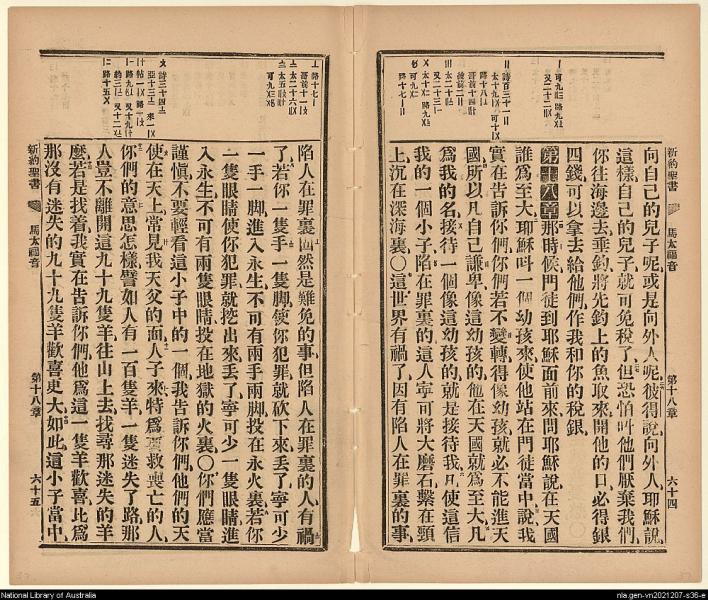 新約聖書
馬太福音
第十八章
六十四
向自己的兒子呢或是向外人呢彼得說向外人耶穌說
這樣自己的兒子就可免稅了但恐怕叫他們厭棄我們
你往海邊去垂釣將先釣上的魚取來開他的口必得銀
四錢可以拿去給他們作我和你的稅銀
第十八章那時候門徒到耶穌面前來問耶穌說在天國
誰爲至大耶穌叫一個幼孩來使他站在門徒當中說我
實在告訴你們你們若不變轉得像幼孩就必不能進天
國所以凡自己謙卑像這幼孩的他在天國就爲至大凡
爲我的名接待一個像這幼孩的就是接待我凡使這信
我的一個小子陷在罪裏的這人寧可將大磨石繫在頸
上沉在深海裏〇這世界有禍了因有陷人在罪裏的事
陷人在罪裏固然是難免的事但陷人在罪裏的人有禍
了若你一隻手一隻脚使你犯罪就砍下來丢了寧可少
一手一脚進入永生不可有兩手兩脚投在永火裏若你
一隻眼睛使你犯罪就挖出來丢了寧可少一隻眼睛進
入永生不可有兩隻眼睛投在地獄的火裏〇你們應當
謹愼不要輕看這小子中的一個我告訴你們他們的天
使在天上常見我天父的面人子來特爲要救喪亡的人
你們的意思怎樣譬如人有一百隻羊一隻迷失了路那
人豈不離開這九十九隻羊往山上去找尋那迷失的羊
麽若是找着我實在告訴你們他爲這一隻羊歡喜比爲
那沒有迷失的九十九隻羊歡喜更大如此這小子當中
新約聖書
馬太福音
第十八章
六十五
National Library of Australia
nla.gen-vn2021207-s36-e